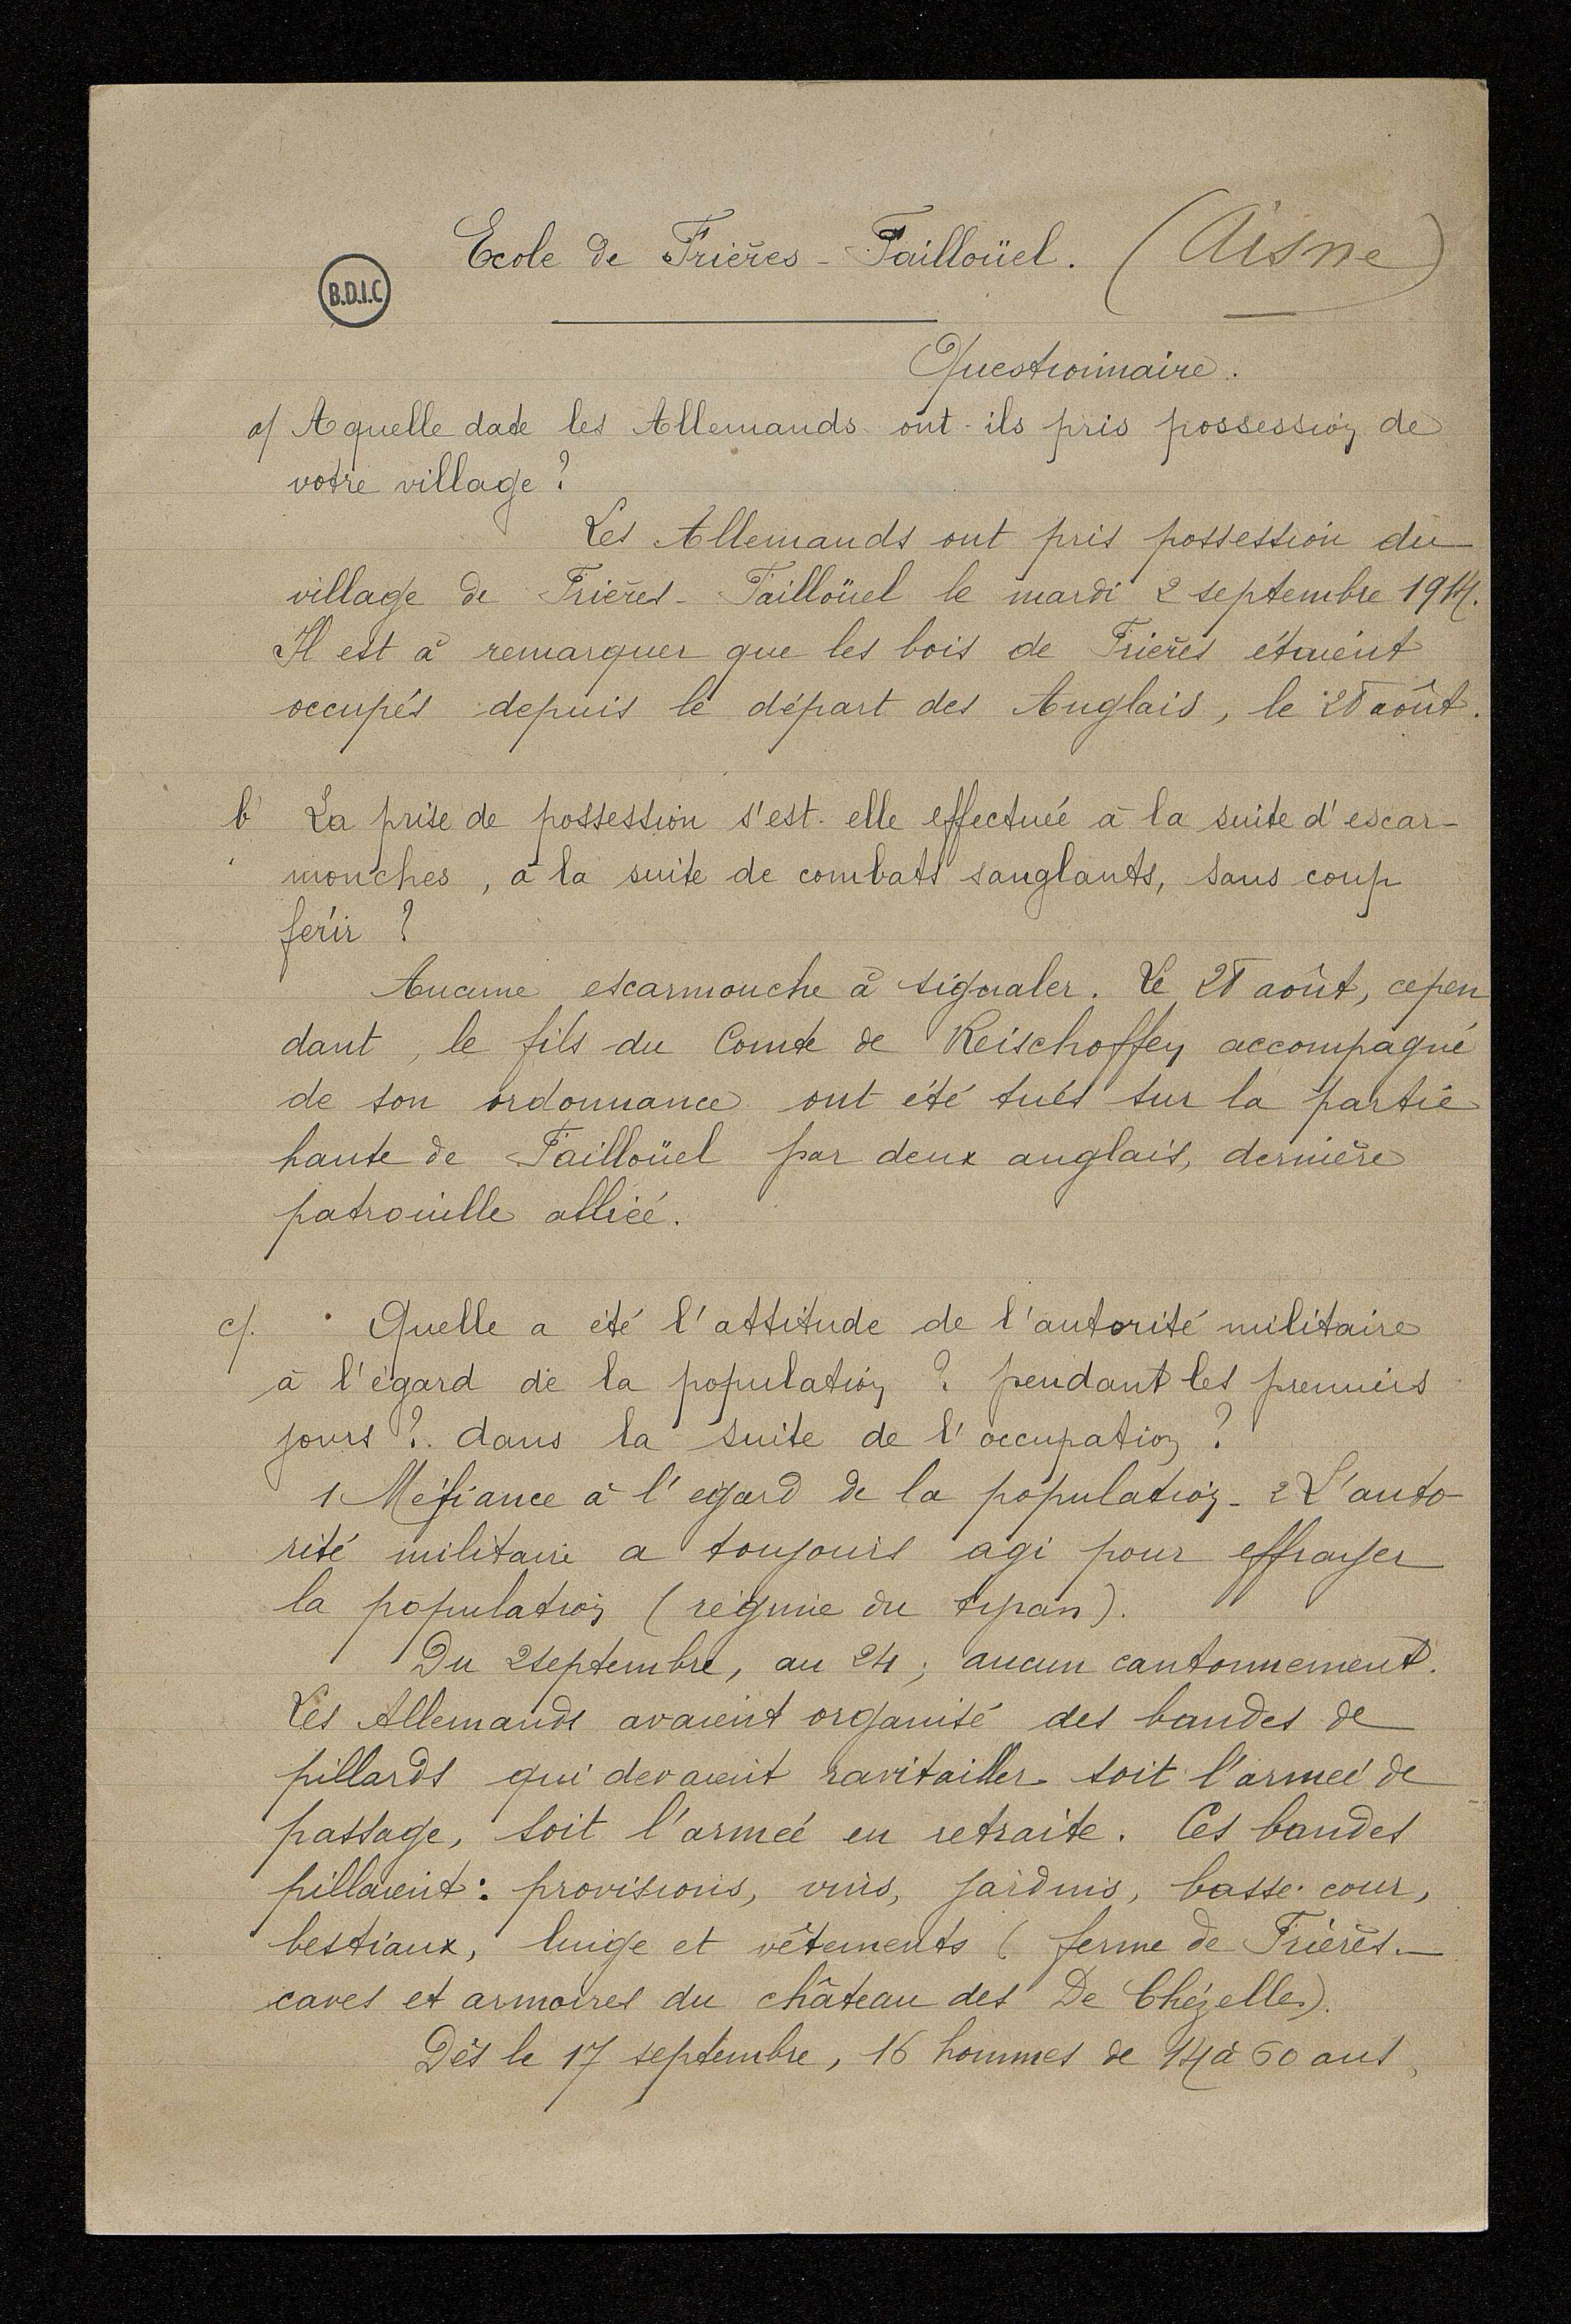 Ecole de Frières-Faillouël. (Aisne)
B.D.I.C
Questionnaire.
a/ A quelle date les Allemands ont-ils pris possession de
votre village ?
Les Allemands ont pris possession du
village de Frières-Faillouël le mardi 2 septembre 1914.
Il est à remarquer que les bois de Frières étaient
occupés depuis le départ des Anglais, le 28 août.
b La prise de possession s'est-elle effectuée à la suite d'escar-
mouches, à la suite de combats sanglants, sans coup
férir ?
Aucune escarmouche à signaler. Le 28 août, cepen
dant, le fils du Comte de Reischoffen accompagné
de son ordonnance ont été tués sur la partie
haute de Faillouël par deux anglais, dernière
patrouille alliée.
c/. Quelle a été l'attitude de l'autorité militaire
à l'égard de la population ? pendant les premiers
jours ? dans la suite de l'occupation ?
1 Méfiance à l'égard de la population - 2 L'auto-
rité militaire a toujours agi pour effrayer
la population (régime du typan).
Du 2 septembre, au 24 ; aucun cantonnement.
Les Allemands avaient organisé des bandes de
pillards qui devaient ravitailler soit l'armée de
passage, soit l'armée en retraite. Ces bandes
pillaient : provisions, vins, jardins, basse-cour,
bestiaux, linge et vêtements (ferme de Frières -
caves et armoires du château des De Chézelles).
Dès le 17 septembre, 16 hommes de 14 à 60 ans,